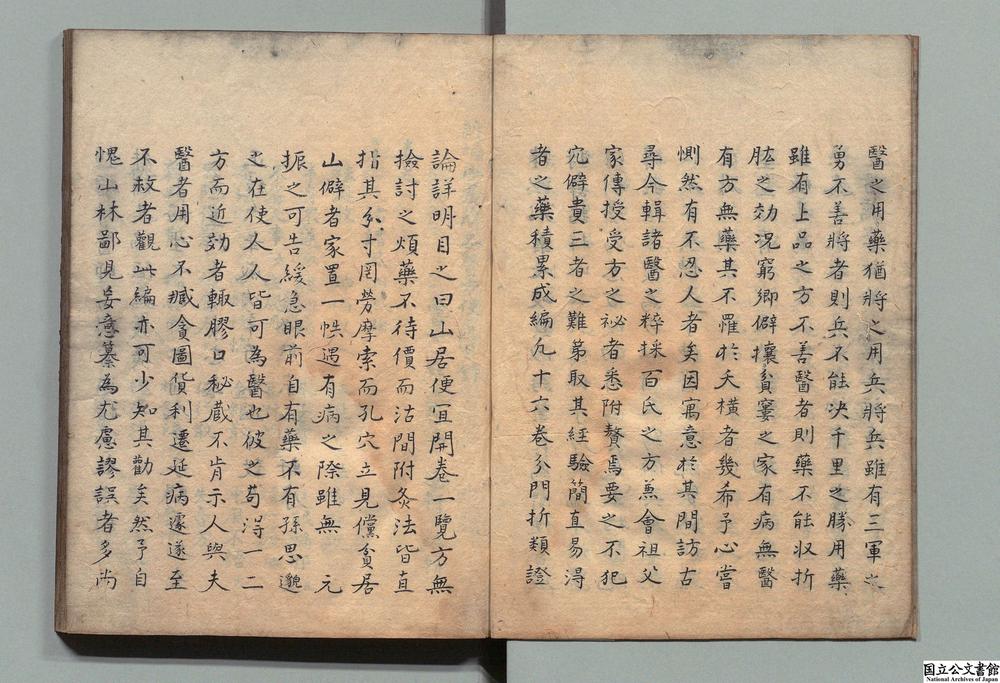 醫之用藥猶將之用兵將兵雖有三軍之
勇不善將者則兵不能决千里之勝用藥
雖有上品之方不善醫者則藥不能収折
肱之効况窮鄉僻攘貧窶之家有病無醫
有方無藥其不罹於夭橫者幾希予心嘗
惻然有不忍人者矣因寓意於其間訪古
尋今輯諸醫之粹採百氏之方兼會祖父
家傳授受方之祕者悉附贅焉要之不犯
宂僻貴三者之難第取其經驗簡直易淂
者之藥積累成編凢十六卷分門折類證
論詳明目之曰山居便宜開卷一覽方無
撿討之煩藥不待價而沽間附灸法皆直
指其分寸罔勞摩索而孔穴立見儻貧居
山僻者家置一帙遇有病之際雖無 元
振之可告緩急眼前自有藥不有孫思邈
之在使人人皆可為醫也彼之苟淂一二
方而近効者輙膠口秘蔵不肯示人與夫
醫者用心不臧貪圖貨利遷延病遽遂至
不赦者觀此編亦可少知其勸矣然予自
愧山林鄙見妄意纂為尤慮謬誤者多尚
国立公文書館
National Archives of Japan